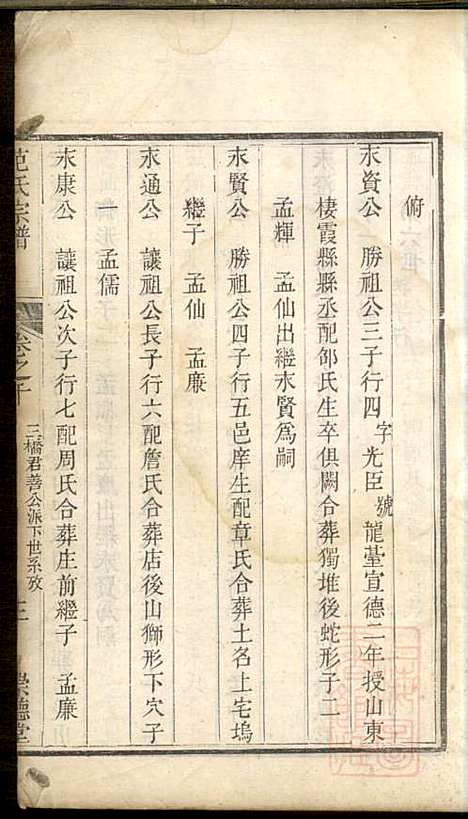 俯
永資公　勝祖公三子行四字光臣號龍臺宣德二年授山東
棲霞縣縣丞配邰氏生卒俱闕合葬獨堆後蛇形子二
孟輝　孟仙出繼永賢爲嗣
永賢公　勝祖公四子行五邑庠生配章氏合葬土名上宅塢
繼子　孟仙　孟廉
永通公　讓祖公長子行六配詹氏合葬店後山獅形下穴子
一　孟儒
永康公　讓祖公次子行七配周氏合葬庄前繼子　孟廉
范氏宗譜　卷之十　三橋君善公派下世系攷　三　崇德堂